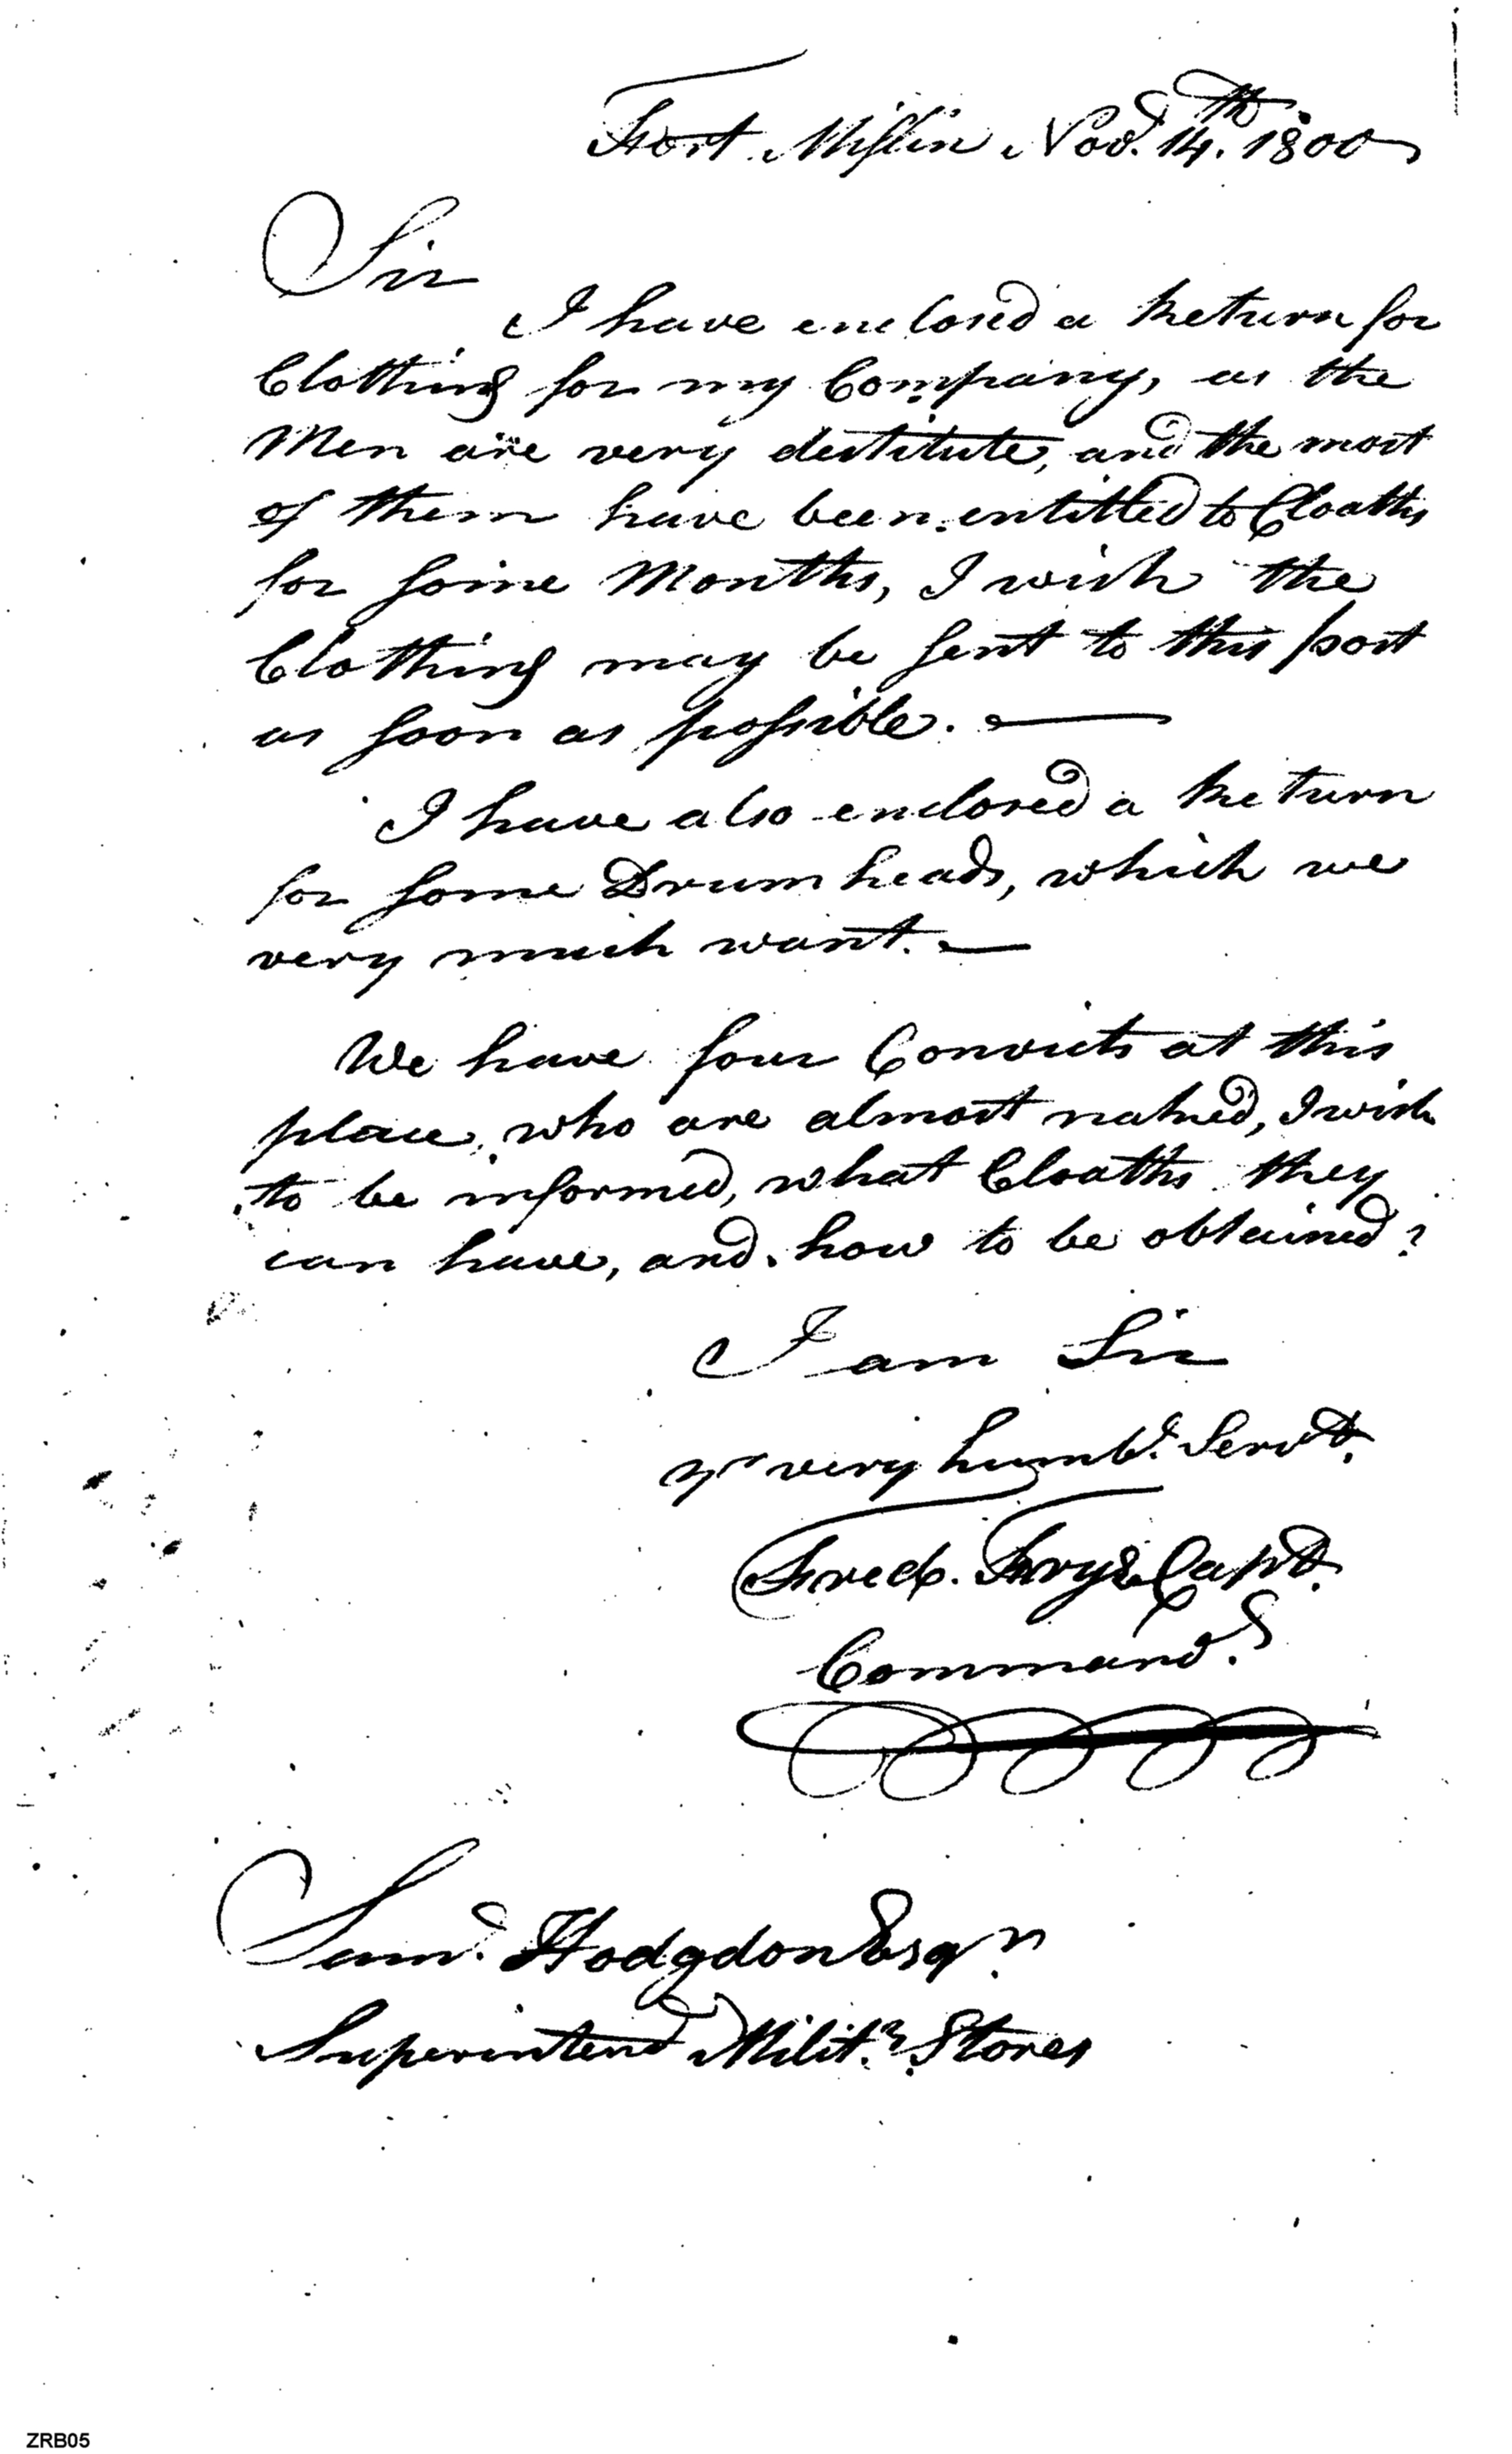 Fort Mifflin Nov.r 14.th 1800
Sir
I have enclosed a Return for
Clothing for my Company, as the
Men are very destitute, and the most
of them have been entitled to Cloaths
for some Months, I wish the
Clothing may be sent to this post
as soon as possible. —
I have also enclosed a Return
for some Drum heads, which we
very much want. —
We have four Convicts at this
place, who are almost naked, I wish
to be informed, what Cloaths they
can have, and how to be obtained?
I am Sir
yr very humbl. Servt.
Fredk. Frye Capt.
Command.g
Saml. Hodgdon Esqr.
Superintend Milit.y Stores
ZRB05